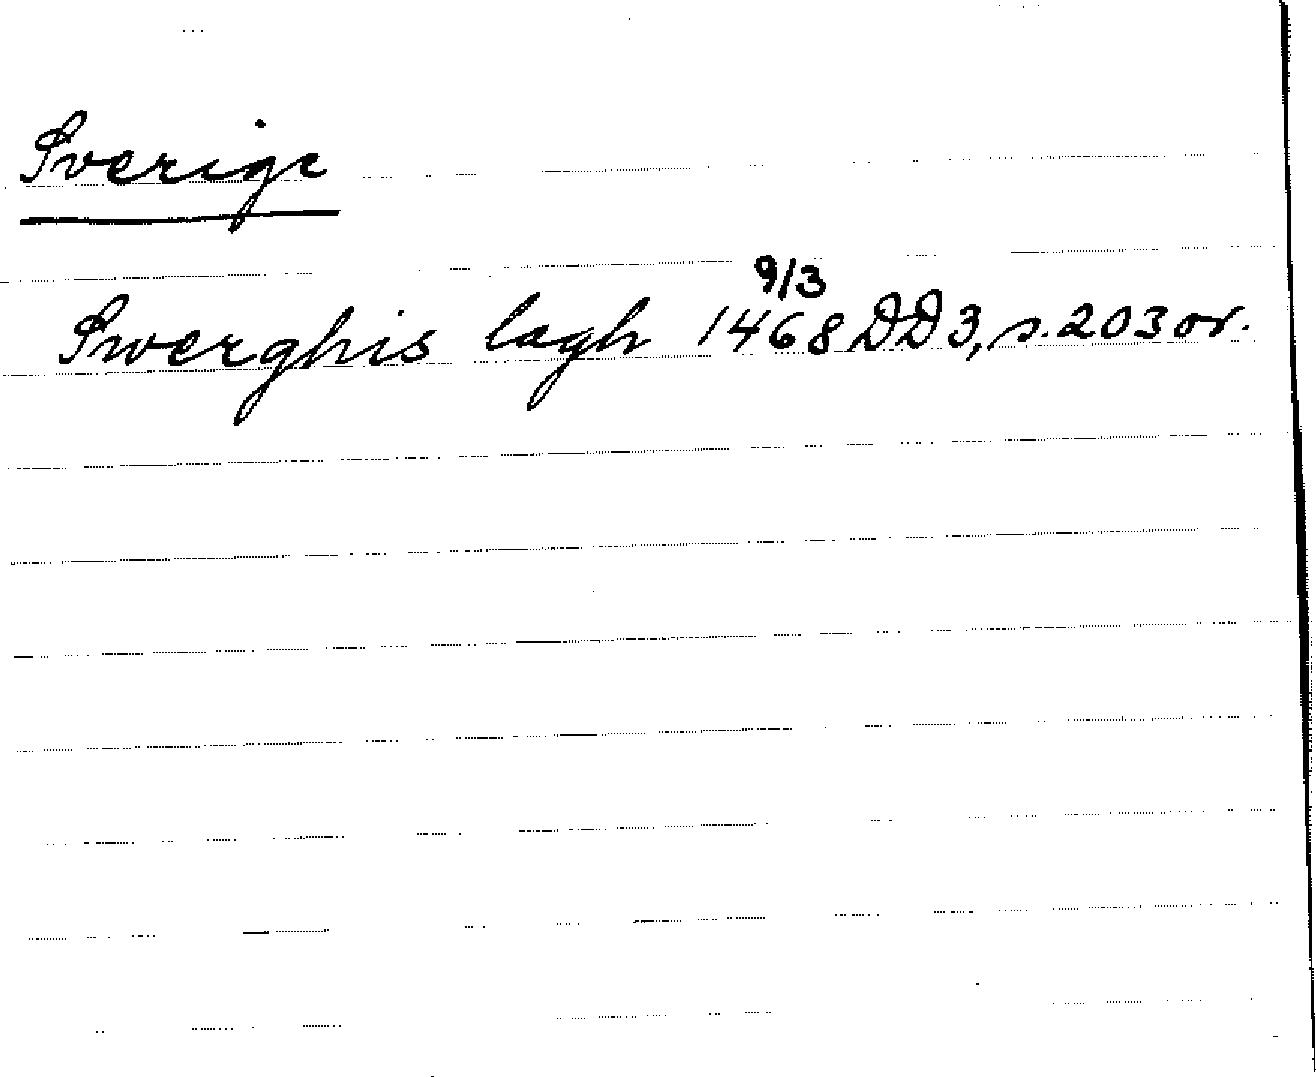 Sverige
9/3
Swerghis lagh 1468 DD3, s. 203 or.